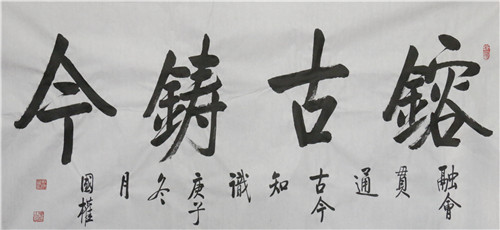 鎔古鑄今
融會貫通古今知識庚子冬月
國權